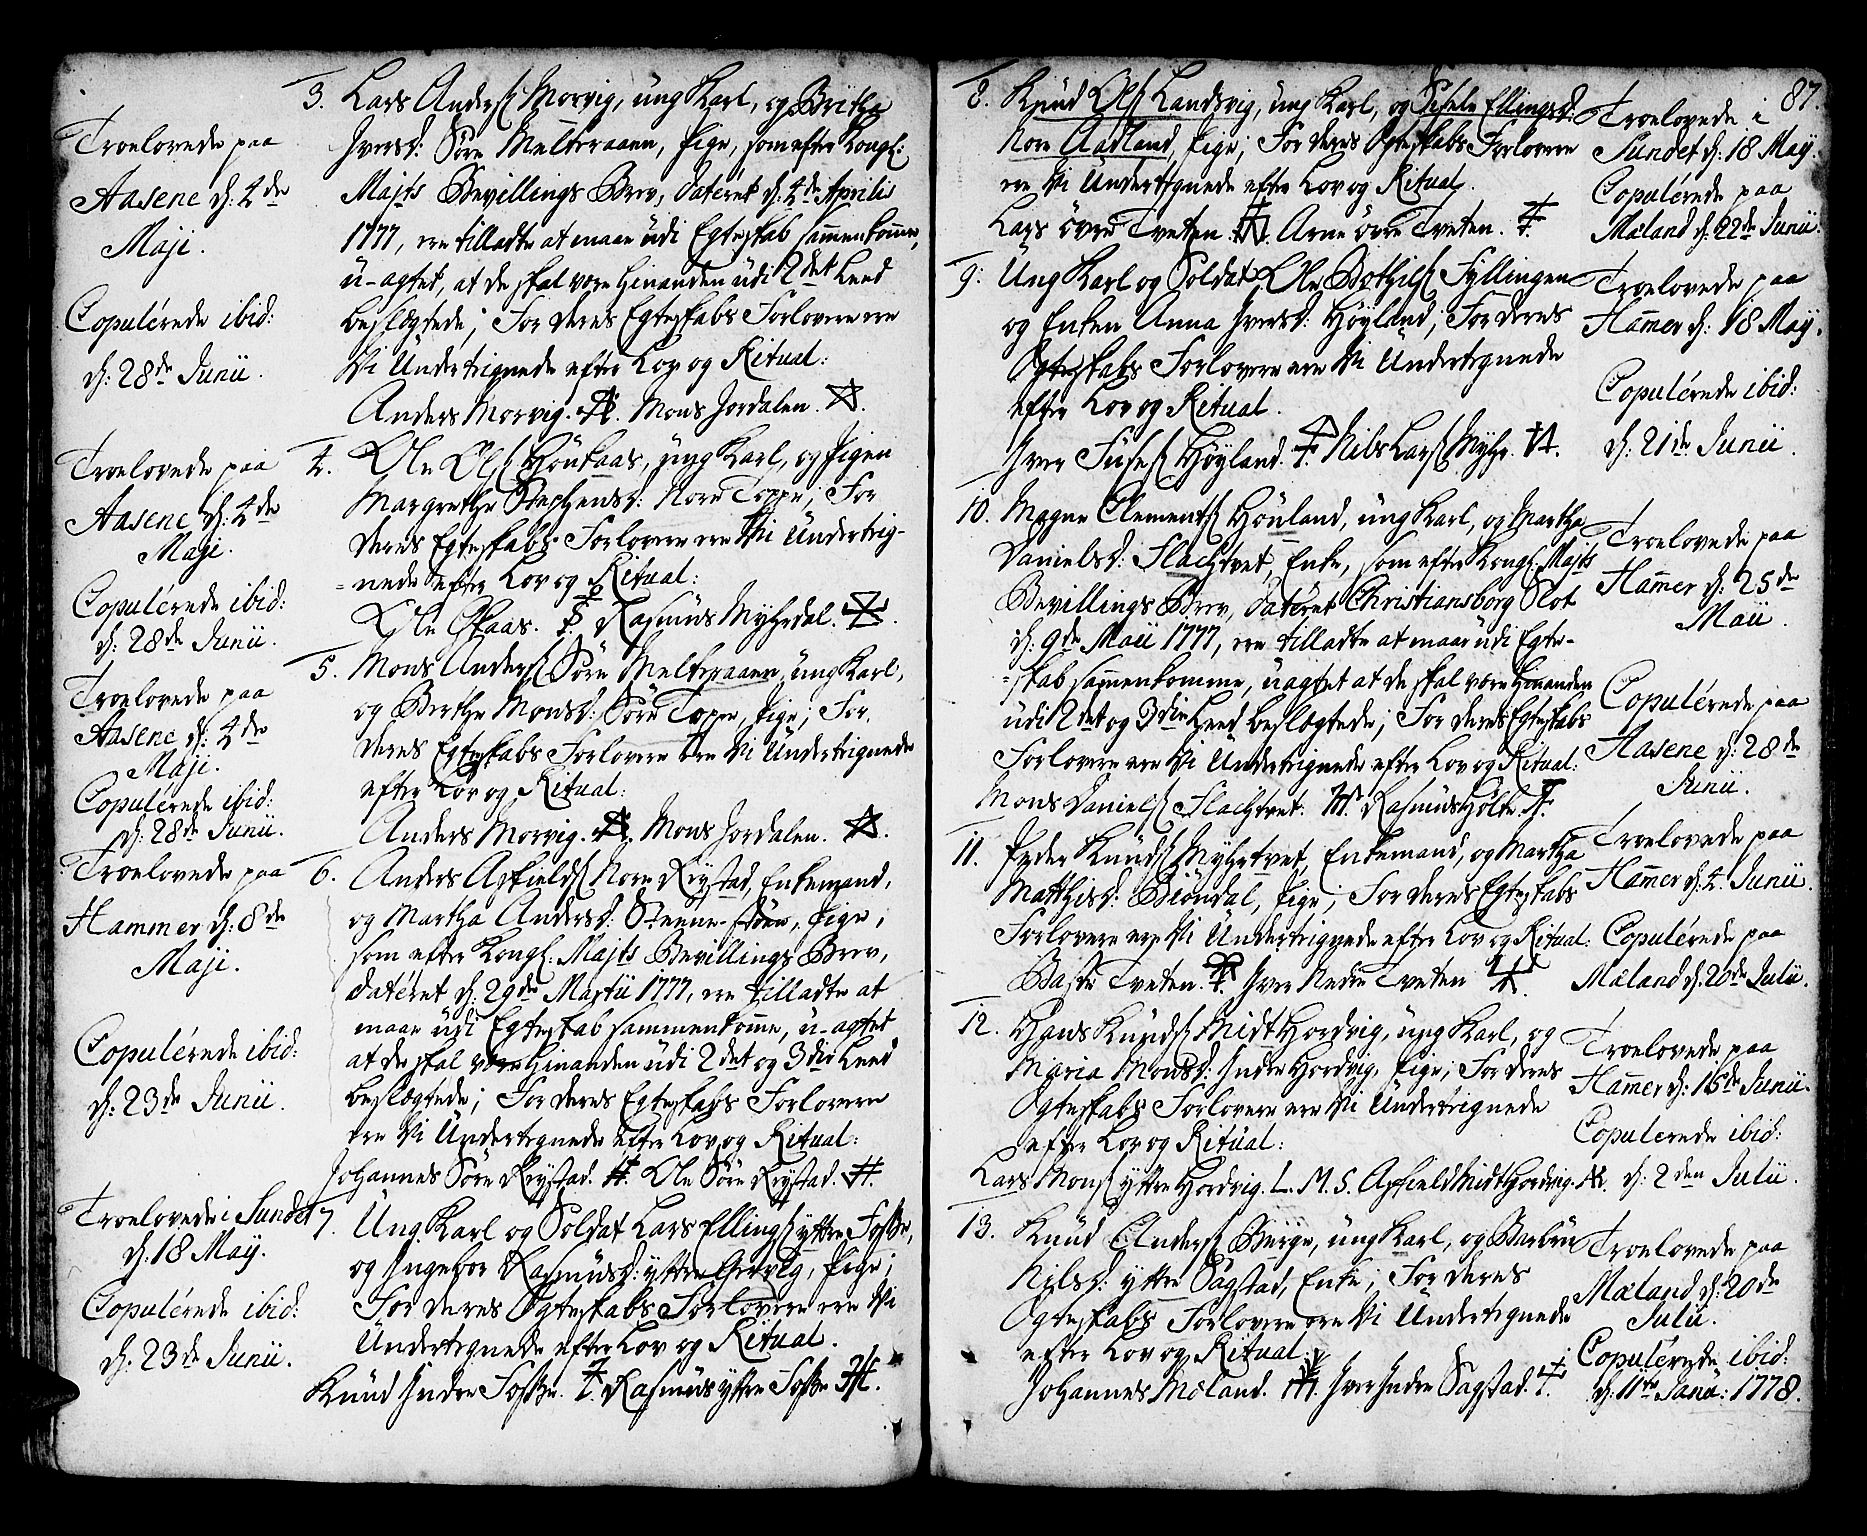 Troelovede paa
Aasene d: 4de
Maji.
Copulérede ibid:
d: 28de Junii.
3. Lars Anders: Morvig, ung Karl, og Britha
Iversd: Søre Melkeraaen, Pige, som efter Kongl:
Majts Bevillings Brev, datéret d: 4de Aprilis
1777, ere tilladte at maae udi Egteskab sammenkomme,
u-agtet, at de skal være hinanden udi 2det Leed
beslægtede; For deres Egteskabs Forlovere ere
Vi Undertegnede efter Lov og Ritual:
Anders Morvig. Mons Jordalen.
Troelovede paa
Aasene d: 4de
Maji.
Copulérede ibid:
d: 28de Junii.
4. Ole Ols: Høukaas, ung Karl, og Pigen
Margrethe Stephensd: Nore Toppe; For
deres Egteskabs Forlovere ere Vi Underteg-
=nede efter Lov og Ritual:
Ole Spaas. Rasmus Myhrdal.
Troelovede paa
Aasene d: 4de
Maji.
Copulérede ibid:
d: 28de Junii.
5. Mons Anders: Søre Melkeraaen, ung Karl,
og Berthe Monsd: Søre Toppe, Pige; For
deres Egteskabs Forlovere ere Vi Undertegnede
efter Lov og Ritual:
Anders Morvig. Mons Jordalen.
Troelovede paa
Hammer d: 8de
Maji.
Copulérede ibid:
d: 23de Junii.
6. Anders Apfields: Nore Røystad, Enkemand,
og Martha Andersd: Steene-Øden, Pige;
som efter Kongl: Majts Bevillings Brev,
datéret d: 29de Martii 1777, ere tilladte at
maae udi Egteskab sammenkomme, u-agtet
at de skal være hinanden udi 2det og 3die Leed
beslægtede; For deres Egteskabs Forlovere
ere Vi Undertegnede efter Lov og Ritual:
Johannes Søre Røystad. Ole Søre Røystad.
Troelovede i Sundet
d: 18 May.
Copulérede ibid:
d: 23de Junii.
7. Ung Karl og Soldat Lars Ellings: yttre Fosse,
og Ingebor Rasmusd: yttre Grevig, Pige;
For deres Ægteskabs Forlovere ere Vi
Undertegnede efter Lov og Ritual.
Knud Indre Fosse. Rasmus yttre Fosse.
87.
8. Knud Ols: Landsvig, ung Karl, og Sisele Ellingsd:
Nore Aadland, Pige; For deres Ægteskabs Forlovere
ere Vi Undertegnede efter Lov og Ritual.
Lars øvre Tveten. Arne øvre Tveten.
Troelovede i
Sundet d: 18 May.
Copulérede paa
Mæland d: 22de Junii.
9. Ung Karl og Soldat Ole Bothils: Fyllingen
og Enken Anna Iversd: Høyland; For deres
Ægteskabs Forlovere ere Vi Undertegnede
efter Lov og Ritual.
Iver Fuses: Høyland. Nils Lars: Myhr.
Troelovede paa
Hammer d: 18 May.
Copulérede ibid:
d: 21de Junii.
10. Magne Clements: Høuland, ung Karl, og Martha
Danielsd: Flachtvet, Enke, som efter Kongl: Majts
Bevillings Brev, datéret Christiansborg Slot
d: 9de Maii 1777, ere tilladte at maae udi Egte-
=skab sammenkomme, uagtet at de skal være hinanden
udi 2det og 3die Leed beslægtede; For deres Egteskabs
Forlovere ere Vi Undertegnede efter Lov og Ritual:
Mons Daniels: Flachtvet. Rasmus Holte.
Troelovede paa
Hammer d: 25de
Maii.
Copulérede paa
Aasene d: 28de
Junii.
11. Peder Knuds: Myhrtvet, Enkemand, og Martha
Matthisd: Biøndal, Pige; For deres Egteskabs
Forlovere ere Vi Undertegnede efter Lov og Ritual:
Baste Tveten. Iver Nedre Tveten
Troelovede paa
Hammer d: 4. Junii.
Copulérede paa
Mæland d: 20de Julii.
12. Hans Knuds: Midt Hordvig, ung Karl, og
Maria Monsd: Indre Hordvig, Pige; For deres
Ægteskabs Forlovere ere Vi Undertegnede
efter Lov og Ritual:
Lars Mons: yttre Hordvig. L. M. S. Apfield Midt Hordvig.
Troelovede paa
Hammer d: 16de Junii.
Copulerede ibid:
d: 2den Julii.
13. Knud Anders: Berge, ung Karl, og Barbru
Nilsd: yttre Sagstad, Enke; For deres
Ægteskabs Forlovere ere Vi Undertegnede
efter Lov og Ritual:
Johannes Mæland. Iver Indre Sagstad.
Troelovede paa
Mæland d: 20de
Julii.
Copulérede ibid:
d: 11te Janu: 1778.